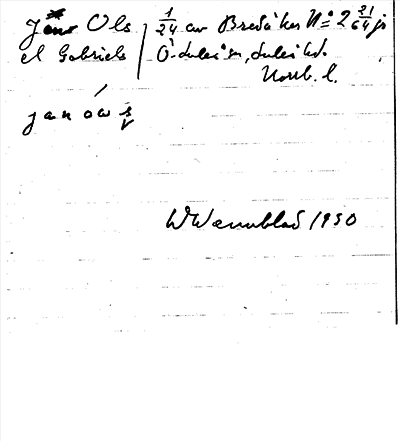 Jans Ols
el Gabriels
1/24 av Bredåker N:o 2 21/64 js
Ö-Luleå sn, Luleå td.
Norrb. l.
janóws
W Wennblad 1930